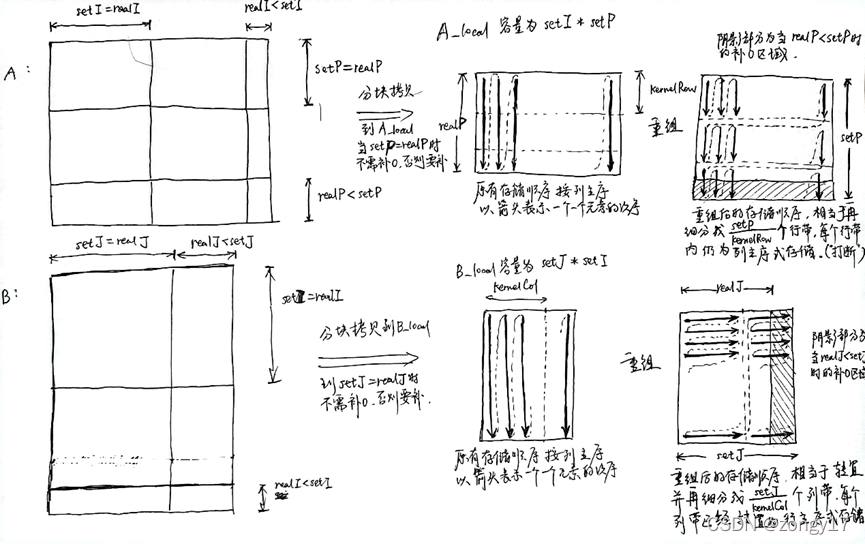 setI=realI
realI<setI
A:
setP=realP
realP<setP
分块拷贝
到A_local
当setP=realP时
不需补0,否则要补
A_local 容量为 setI * setP
realP
kernelRow
原有存储顺序 按列主序
以箭头表示一个一个元素的次序
重组
阴影部分为当 realP<setP时
的补0区域.
setP
重组后的存储顺序, 相当于再
细分成 setP/kernelRow 个行带, 每个行带
内仍为列主序式存储.("打断")
setJ=realJ
realJ<setJ
B:
setI=realI
realI<setI
分块拷贝到B_local
到setJ=realJ时
不需补0,否则要补.
B_local 容量为 setJ * setI
kernelCol
原有存储顺序 按列主序
以箭头表示一个一个元素的次序
重组
realJ
阴影部分为
当realJ<set
时的补0区
setJ
重组后的存储顺序, 相当于转置
并再细分成 setJ/kernelCol 个列带, 每个
列带
行主序式存储
CSDN @zongy17